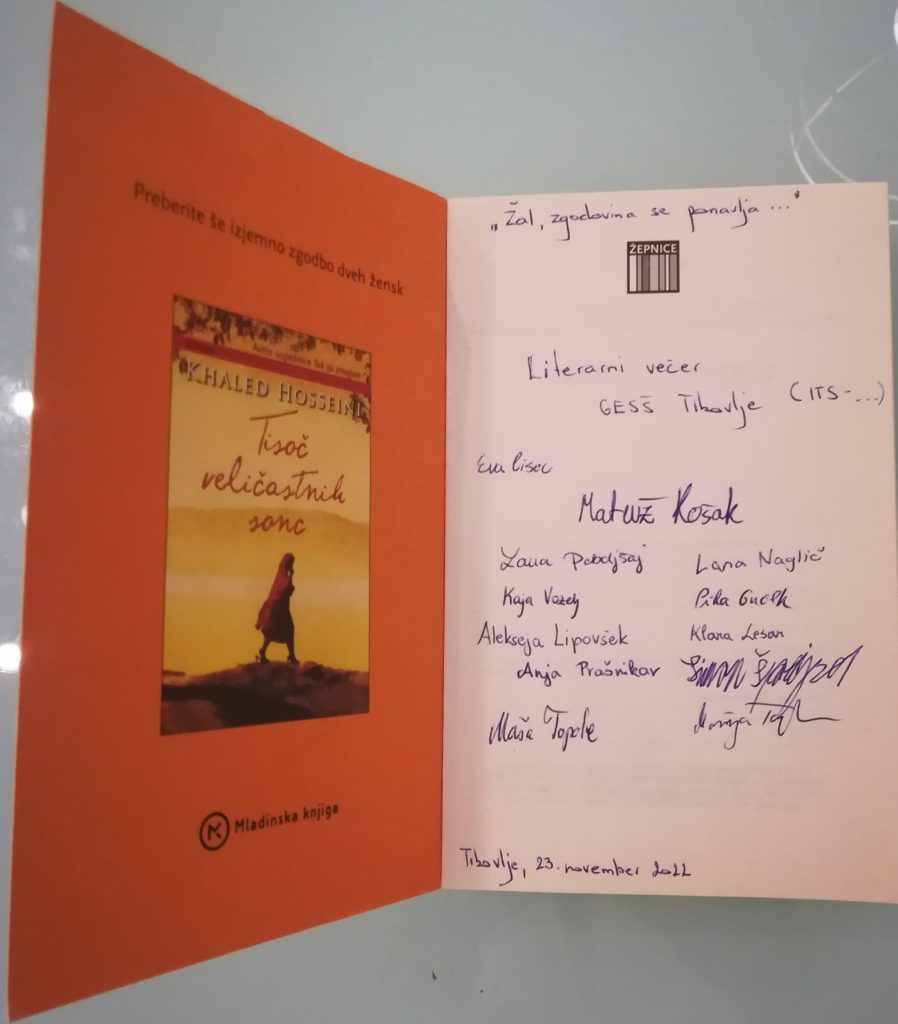 Preberite še izjemno zgodbo dveh žensk
Avtor uspešnice Tek za zmajem
KHALED HOSSEINI
Tisoč
veličastnih
sonc
Mladinska knjiga
„Žal, zgodovina se ponavlja ..."
ŽEPNICE
Literarni večer
GESŠ Trbovlje (ITS-...)
Eva Lisec
Matevž Košak
Lana Naglič
Kaja Vozelj
Pika
Aleksеja Lipovšek
Klara Lesar
Anja Prašnikar
Maša Topole
Trbovlje, 23. november 2022